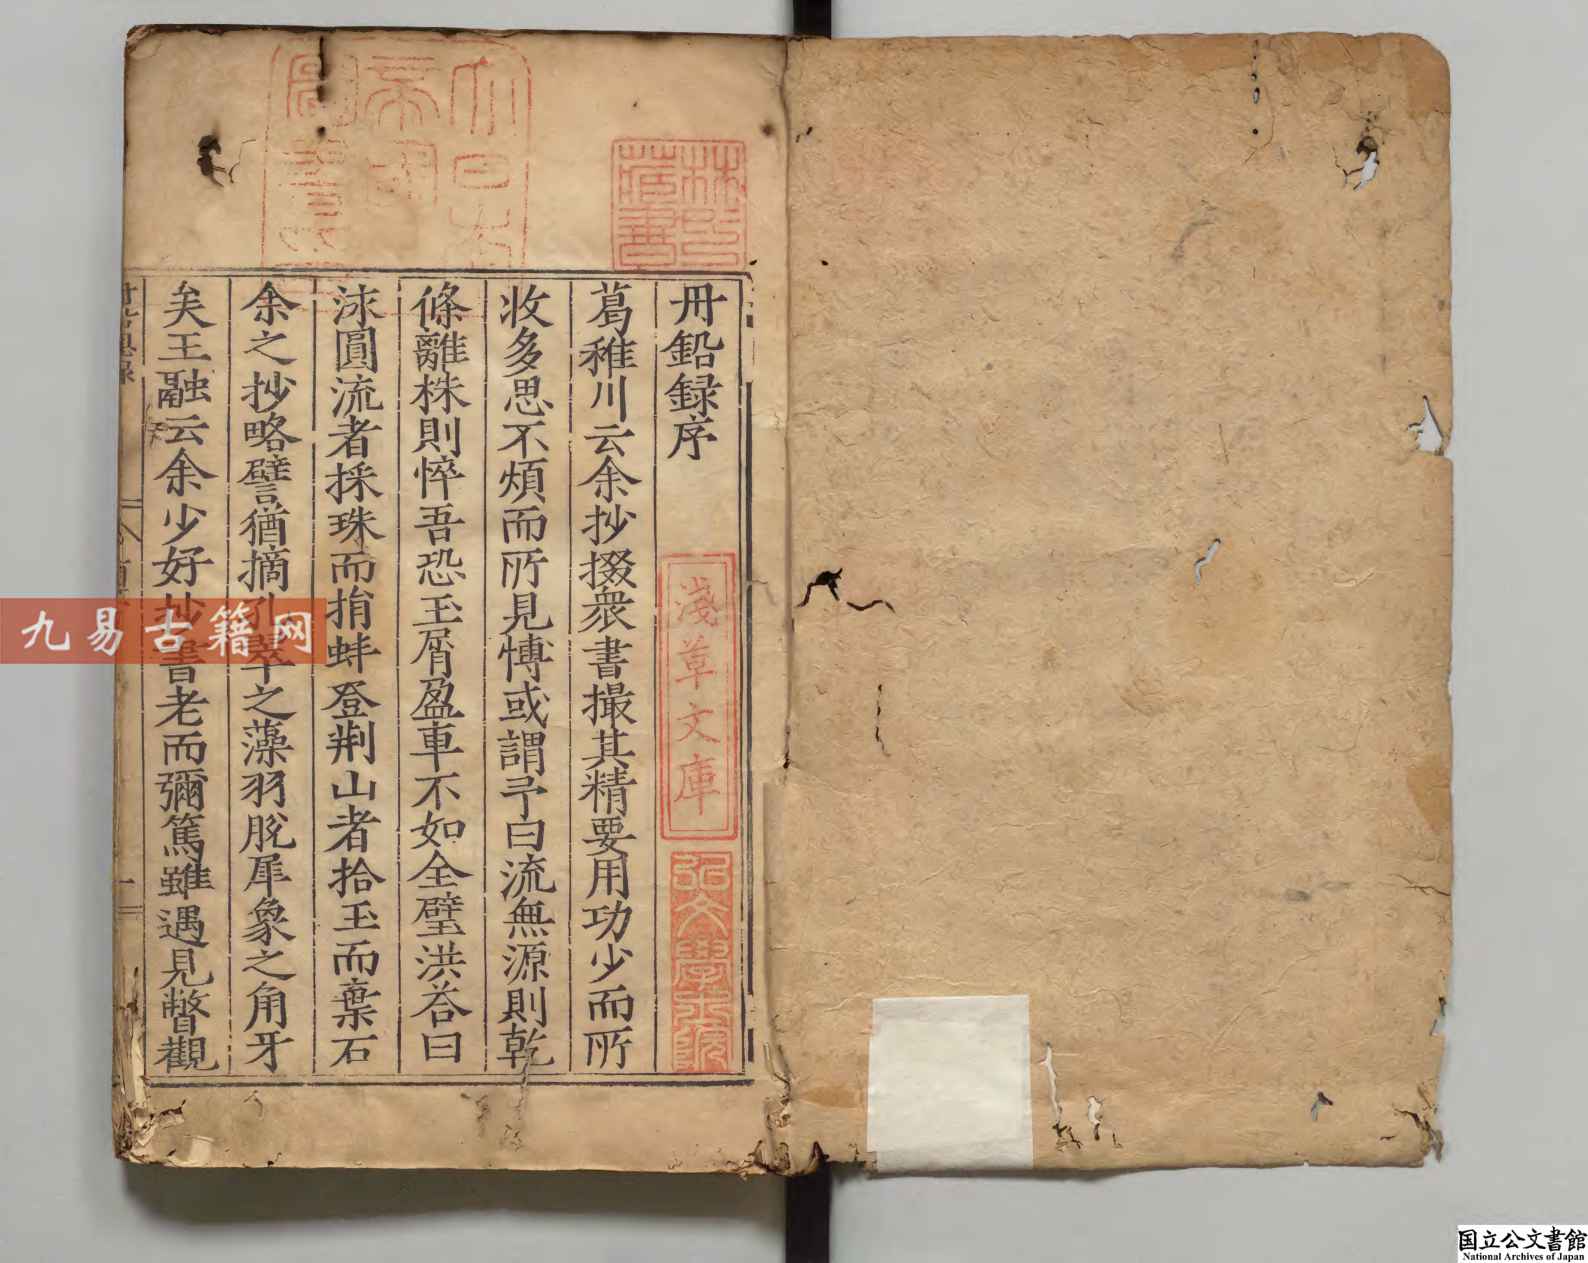 丹鉛録序
葛稚川云余抄掇衆書撮其精要用功少而所
收多思不煩而所見博或謂予曰流無源則乾
條離株則悴吾恐玉屑盈車不如全璧洪荅曰
泳圓流者採珠而捐蚌登荆山者拾玉而棄石
余之抄略譬猶摘孔翠之藻羽脫犀象之角牙
矣王融云余少好抄書老而彌篤雖遇見瞥觀
大日本
帝國
圖書
林氏
藏書
淺草文庫
弘文學士院
九易古籍网
国立公文書館
National Archives of Japan